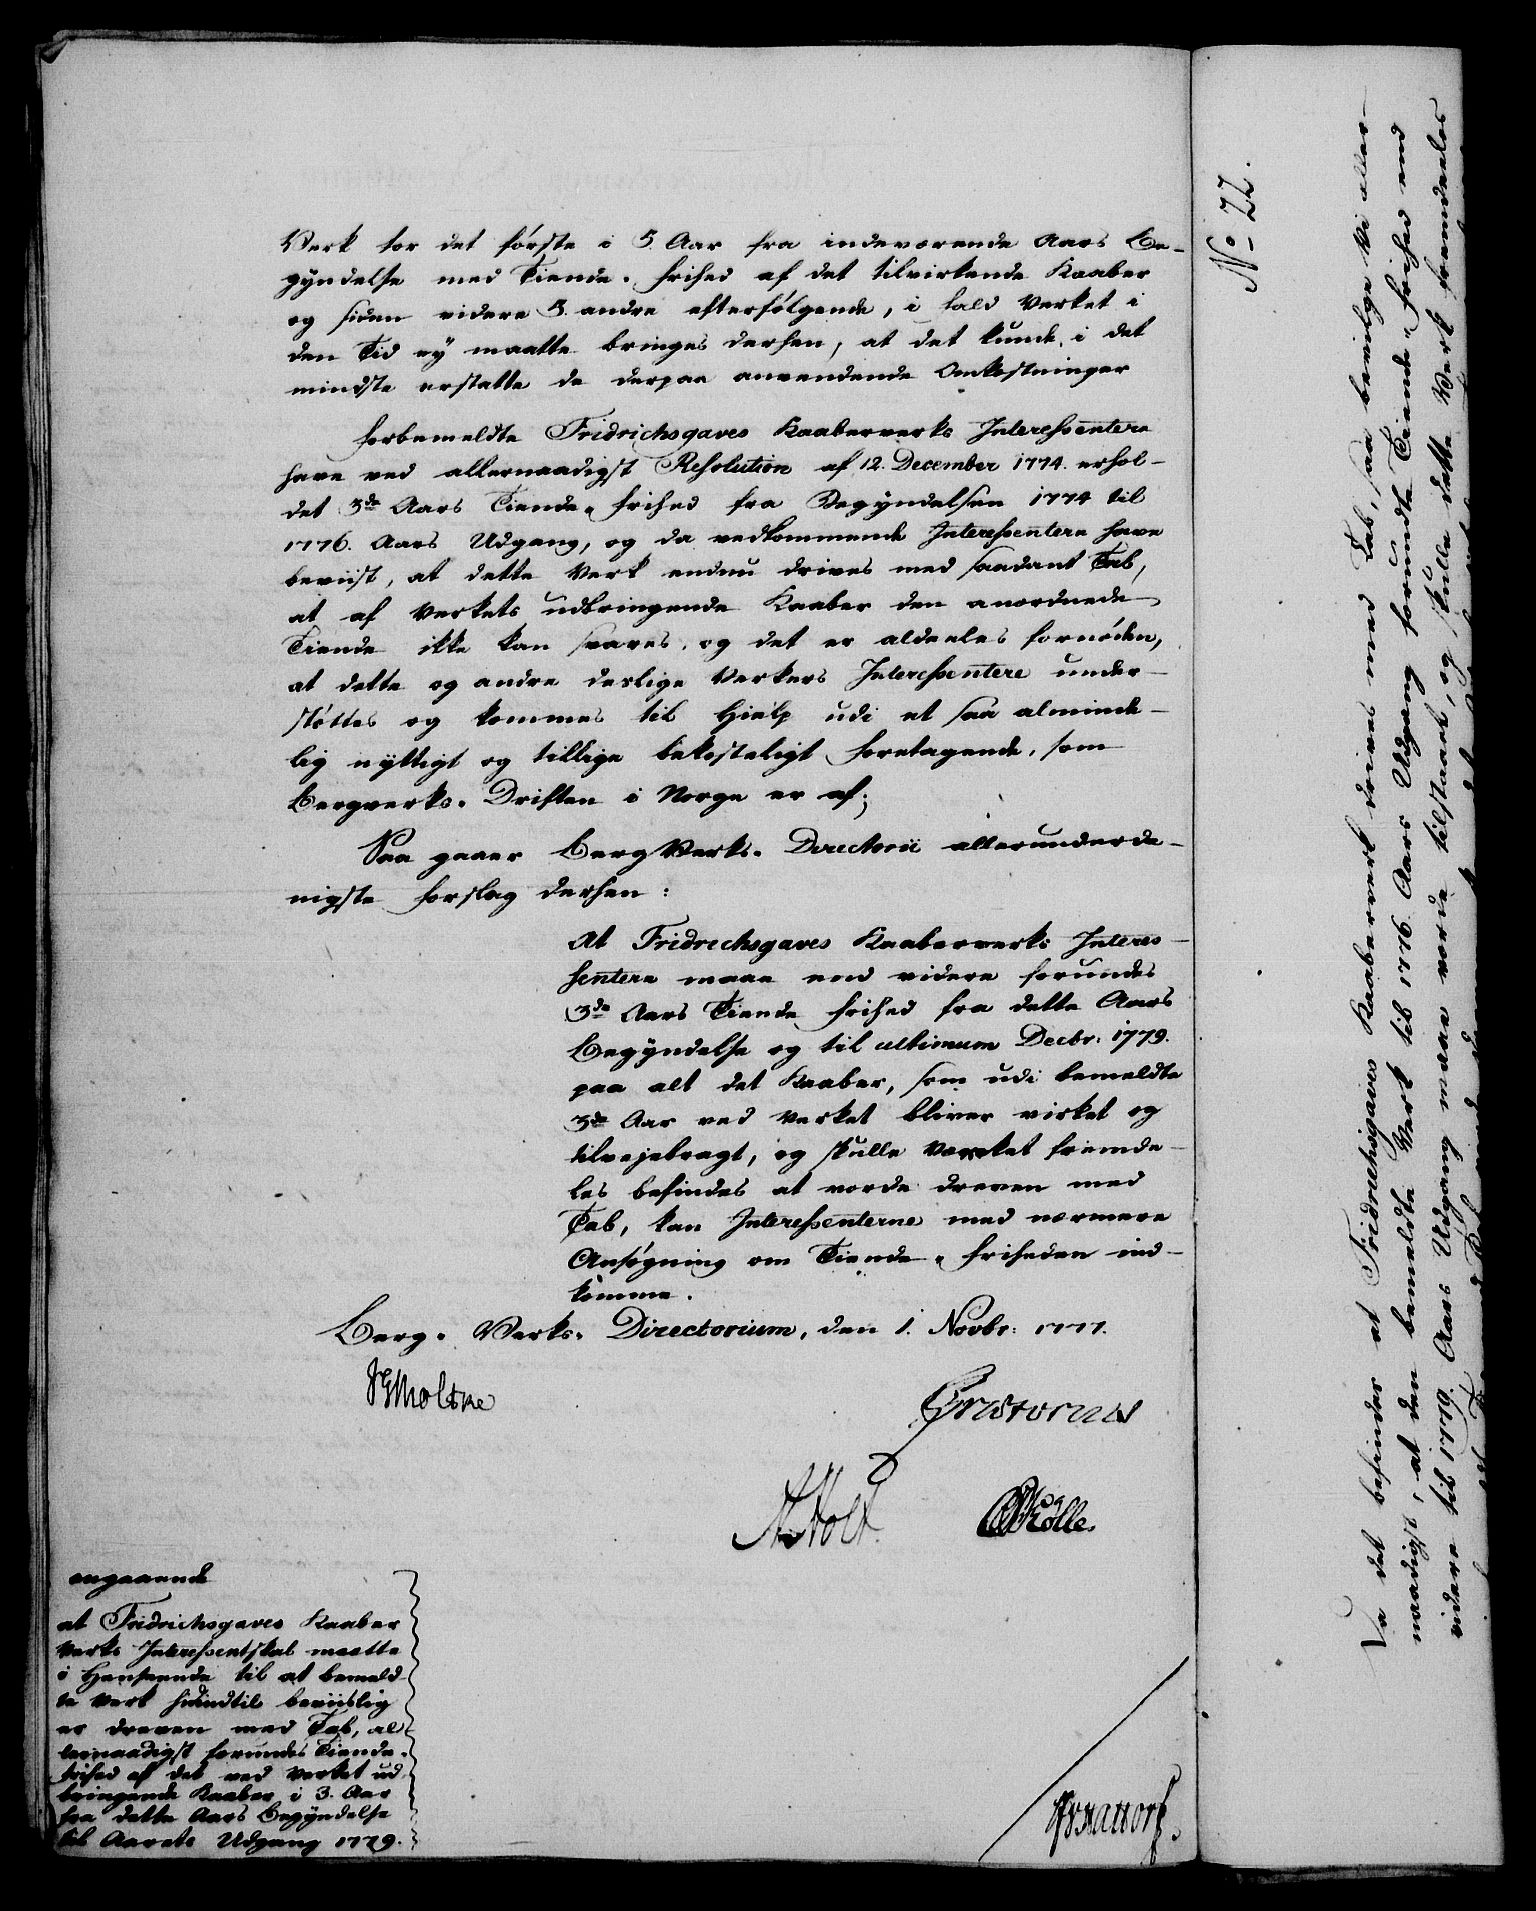 Verk for det første i 5. Aar fra indeværende Aars Be-
gyndelse med Tiende-frihed af det tilvirkende Kaaber
og siden videre 5. andre efterfølgende, i fald Verket i
den Tid ey maatte bringes derhen, at det kunde i det
mindste erstatte de derpaa anvendende Omkostninger
forbemeldte Fridrichsgaves Kaaberverks Interessentere
have ved allernaadigst Resolution af 12. December 1774. erhol-
det 3de Aars Tiende-frihed fra Begyndelsen 1774 til
1776. Aars Udgang, og da vedkommende Interessentere have
beviist, at dette Verk endnu drives med saadant Tab,
at af Verkets udbringende Kaaber den anordnede
Tiende ikke kan svares, og det er aldeeles fornøden,
at dette og andre deslige Verkers Interessentere under-
støttes og kommes til Hielp udi et saa alminde-
lig nyttigt og tillige bekosteligt foretagende, som
Bergverks-Driften i Norge er af;
Saa gaaer BergVerks-Directorii allerunderda-
nigste forslag derhen:
At Fridrichsgaves Kaaberverks Interes-
sentere maae end videre forundes
3de Aars Tiende frihed fra dette Aars
Begyndelse og til ultimum Decbr: 1779.
paa alt det Kaaber, som udi bemeldte
3de Aar ved Verket bliver virket og
tilvejebragt, og skulle Værket fremde-
les befindes at vorde dreven med
Tab, kan Interessenterne med nærmere
Ansøgning om Tiende-friheden ind-
komme.
Berg-Verks-Directorium, den 1. Novbr: 1777.
Moltke
Holt
Kølle.
angaaende
at Fridrichsgaves Kaaber
Verks Interessentskab maatte
i Henseende til at bemeld-
te Verk hidindtil beviislig
er dreven med Tab, al-
lernaadigst forundes Tiende-
frihed af det ved Verket ud-
bringende Kaaber i 3. Aar
fra dette Aars Begyndelse
til Aarets Udgang 1779.
No 22.
Da det befindes at Fridrichsgaves Kaaberverk drives med Tab, saa bevilge Vi aller-
naadigst, at den bemeldte Verk til 1776. Aars Udgang forundte Tiende-frihed end
videre til 1779. Aars Udgang maae vorde tilstaaet, og skulle dette Verk fremdeeles